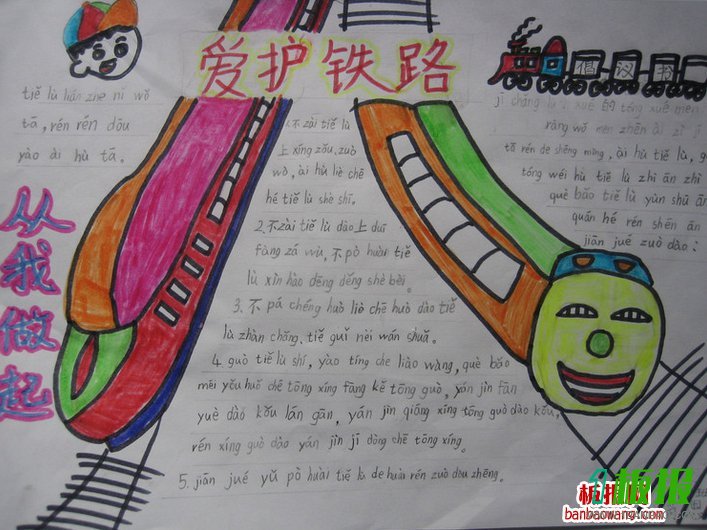 爱护铁路
倡议书
tiě lù lián zhe nǐ wǒ
tā, rén rén dōu
yào ài hù tā.
从我做起
jī chǎng lù xiǎo xué 的 tóng xué men
ràng wǒ men zhēn ài zì jǐ
tā rén de shēng mìng, ài hù tiě lù, g
tóng wéi hù tiě lù zhì ān zhì
què bǎo tiě lù yùn shū ān
quán hé rén shēn ān
jiān jué zuò dào:
1.不zài tiě lù
上 xíng zǒu, zuò
wò, ài hù liè chē
hé tiě lù shè shī.
2.不zài tiě lù dào上 duī
fàng zá wù, 不 pò huài tiě
lù xìn hào děng děng shè bèi.
3. 不 pá chéng huò liè chē huò dào tiě
lù zhàn chǎng, tiě guǐ nèi wán shuǎ.
4. guò tiě lù shí, yào tíng chē liào wàng, què bǎo
méi yǒu huǒ chē tōng xíng fāng kě tōng guò, yán jìn fān
yuè dào kǒu lán gān, yán jìn qiǎng xíng tōng guò dào kǒu,
rén xíng guò dào yán jìn jī dòng chē tōng xíng.
5. jiān jué yǔ pò huài tiě lù de huài rén zuò dòu zhēng.
板报
banbaowang.com